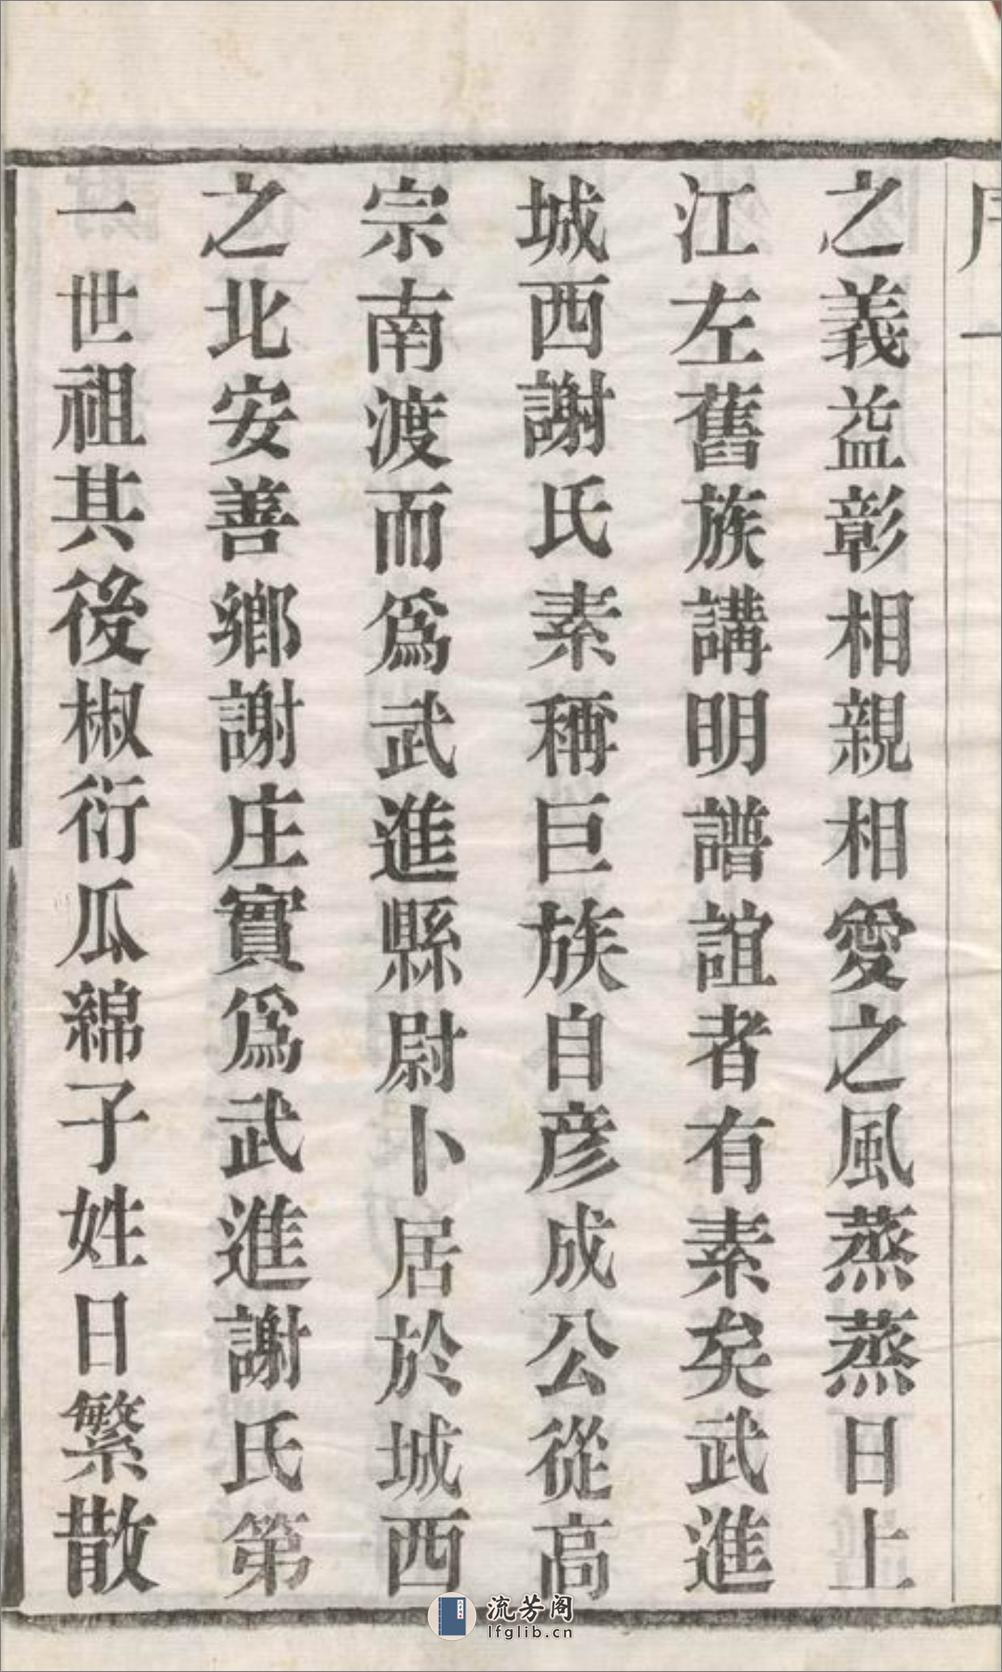 之義益彰相親相愛之風蒸蒸日上
江左舊族講明譜誼者有素矣武進
城西謝氏素稱巨族自彥成公從高
宗南渡而爲武進縣尉卜居於城西
之北安善鄉謝庄實爲武進謝氏第
一世祖其後椒衍瓜綿子姓日繁散
流芳阁
lfglib.cn